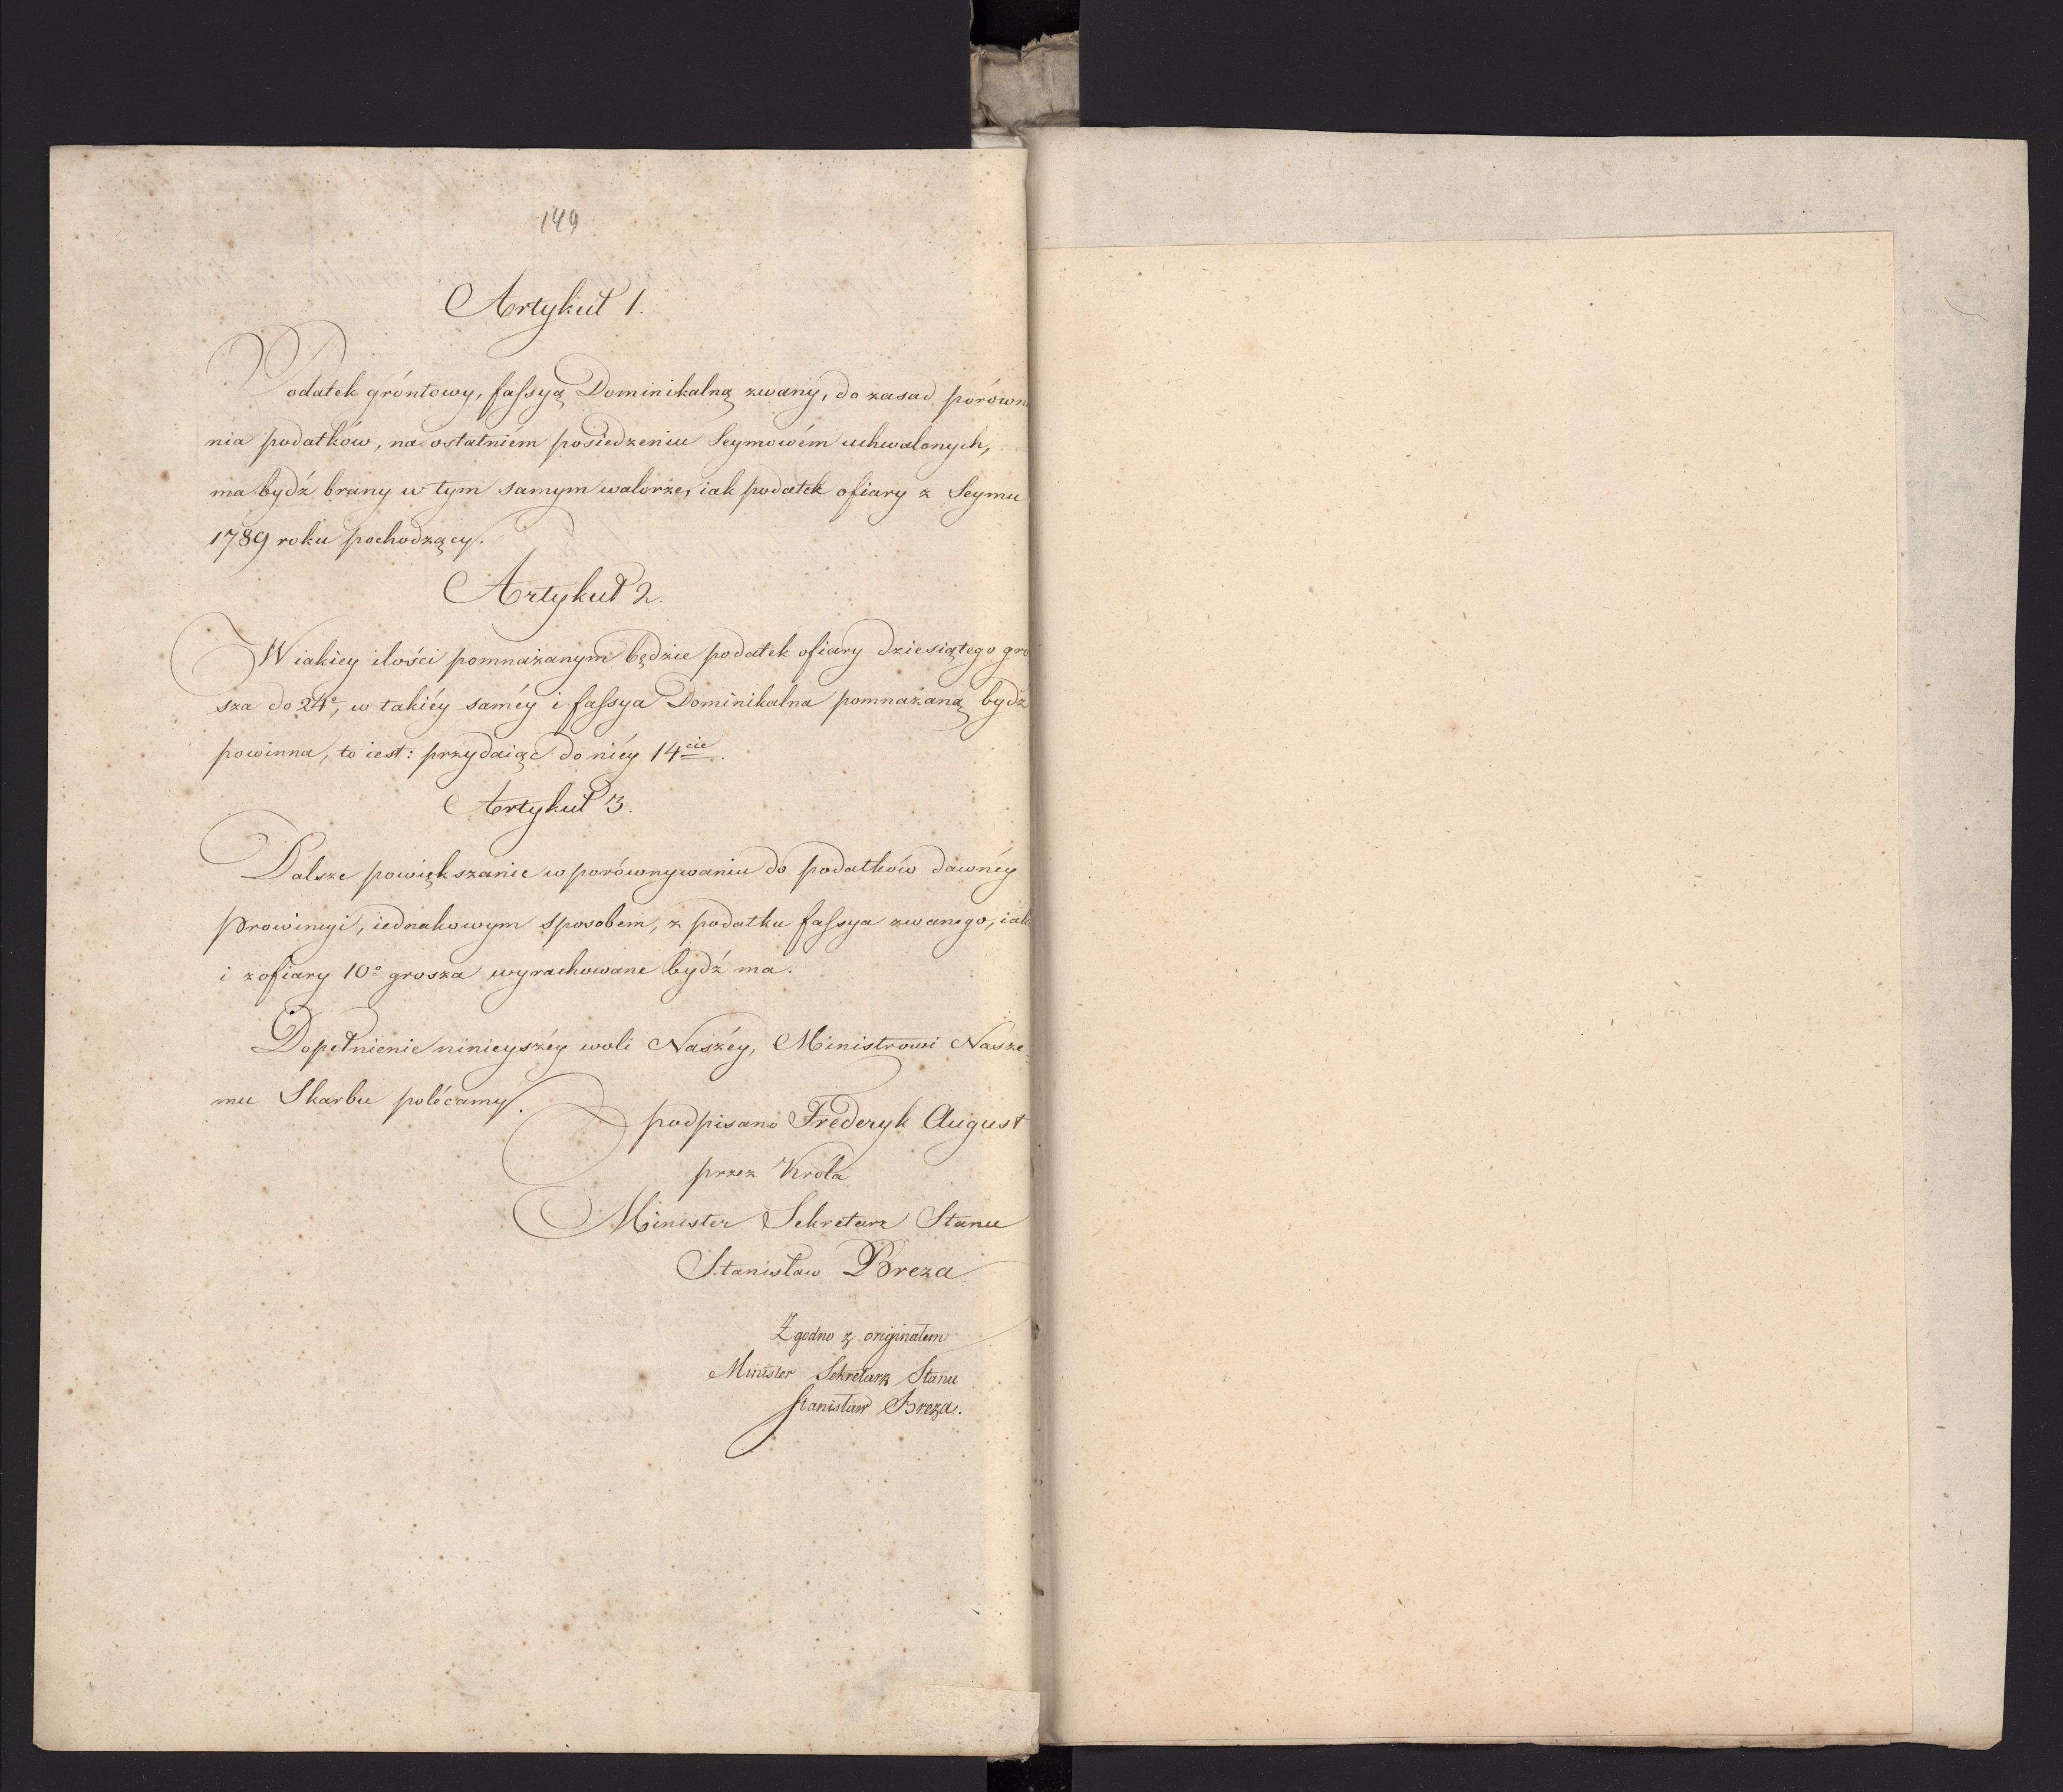 149
Artykuł 1.
Podatek gróntowy, fassyą Dominikalną zwany, do zasad porówna
nia podatków, na ostatniém posiedzeniu Seymowém uchwalonych,
ma bydź brany w tym samym walorze, iak podatek ofiary z Seymu
1789 roku pochodzący.
Artykuł 2.
W iakiey ilości pomnażanym będzie podatek ofiary dziesiątego gro
sza do 24º, w takiéy saméy i fassya Dominikalna pomnażaną bydź
powinna, to iest: przydaiąc do niéy 14cie.
Artykuł 3.
Dalsze powiększanie w porównywaniu do podatków dawnéy
Prowincyi, iednakowym sposobem, z podatku fassya zwanego, iak
i z ofiary 10º grosza wyrachowane bydź ma.
Dopełnienie ninieyszéy woli Naszéy, Ministrowi Nasze
mu Skarbu polécamy.
podpisano Fréderyk August
przez Króla
Minister Sekretarz Stanu
Stanisław Breza
Zgodno z originałem
Minister Sekretarz Stanu
Stanisław Breza.